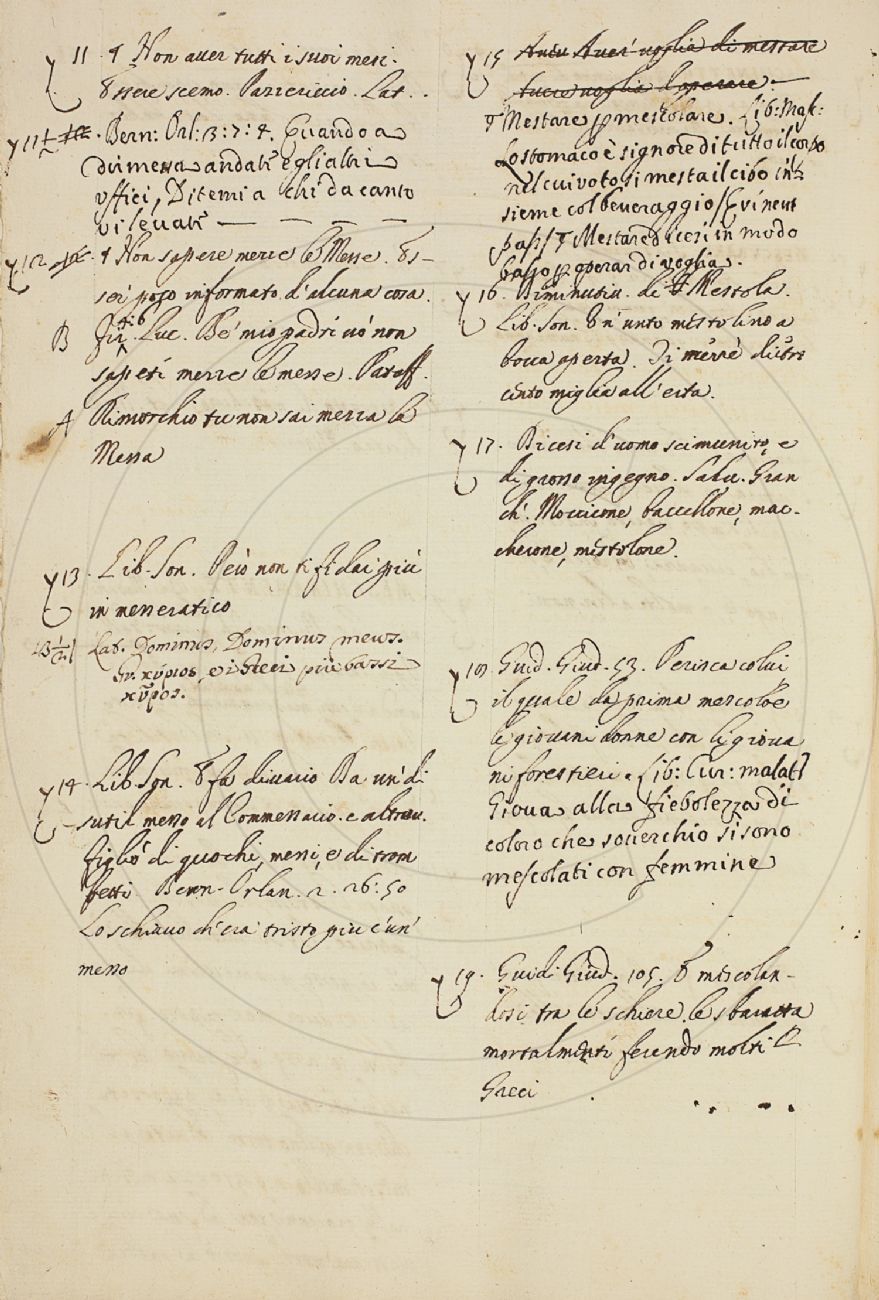 11. ¶ Non aver tutti i suoi mesi.
Essere scemo. Pazziccio. Lat. .
11½ Bern: Orl: 3: 7: 4. Quando a
dir messa andate e gli altri
uffici, Ditemi a chi da canto
vi levate — — — —
12 ¶ Non sapere mezze le Messe. Es-
ser poco informato d'alcuna cosa.
B Luc. Be' mio padre vo' non
sapete mezze le messe. Pataff.
A Rimorchio tu non sai mezza la
Messa
13. Lib. Son. Però non ti fidar più
in messeratico
13½ Lat. Dominus, Dominus meus.
Gr. κύριος, e i Greci più bassi
κῦρος.
14. Lib. Son. E fa divario Da un' di
sutil messo al Commessario. e altrov.
Figlio di quochi, messi, e di trom
betti Bern. Orlan. 2. 26: 50
Lo schiavo ch'era tristo più c'un'
messo
15 Aver voglia di mestare
aver voglia d'operare. —
¶ Mestare p mescolare. Lib: Masc:
Lo stomaco è signore di tutto il corpo
nel cui voto si mesta il cibo in-
sieme col beveraggio
¶ Mestare dicesi in modo
basso p operar di voglia.
16. Diminutiv. di Mestola.
Lib. Son. E n'unto mestolino a
bocca aperta.
cento miglia all'erta.
17. Dicesi d'uomo scimunito, e
di grosso ingegno. Salv. Gran
ch. Moccicone, baccellone, mac-
cherone, mestolone.
18. Guid. Giud. 53. Perisca colui
il quale da prima mescolòe
le giovani donne con li giova
ni forestieri. Lib: Cur: malatt
Giova alla fiebolezza di
coloro che soverchio si sono
mescolati con femmine
19. Guid. Giud. 105. E mescolan-
dosi tra le schiere, le sbaratta
mortalmente ferendo molti
Greci